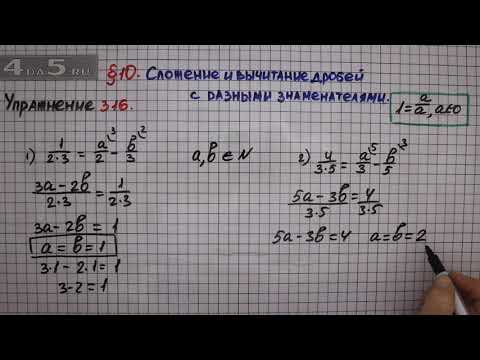 4DA5.RU
§10. Сложение и вычитание дробей
с разными знаменателями.
Упражнение 316.
1 = a/a, a≠0
1) 1/(2·3) = a/2 \3 − b/3 \2
a, b ∈ N
(3a − 2b)/(2·3) = 1/(2·3)
3a − 2b = 1
a = b = 1
3·1 − 2·1 = 1
3 − 2 = 1
2) 4/(3·5) = a/3 \5 − b/5 \3
(5a − 3b)/(3·5) = 4/(3·5)
5a − 3b = 4 a = b = 2